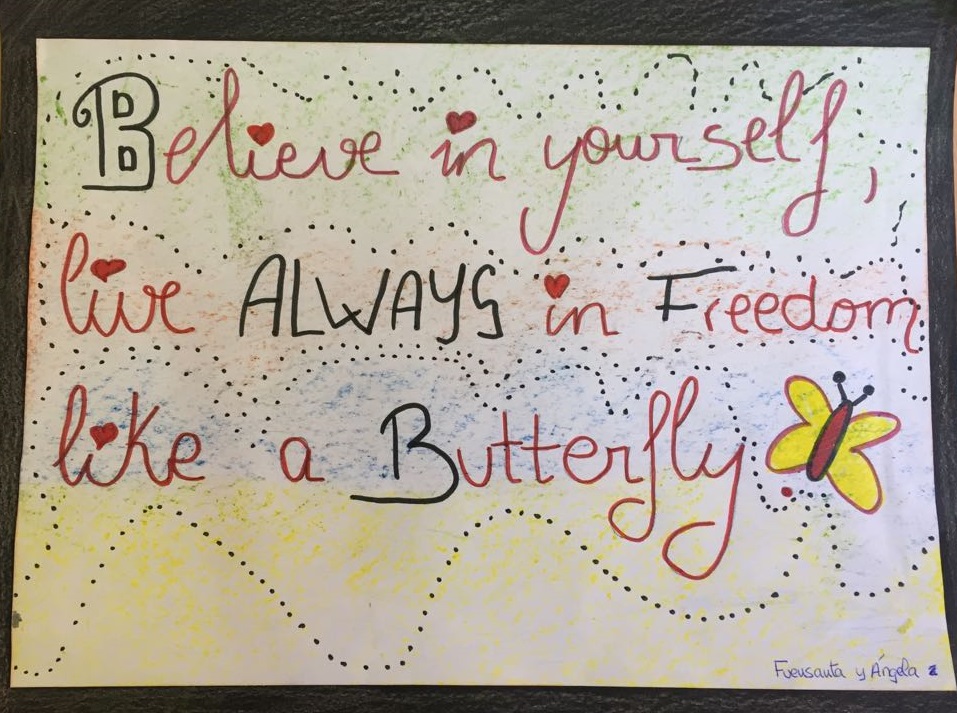 Believe in yourself,
live ALWAYS in Freedom
like a Butterfly
Fuensanta y Ángela